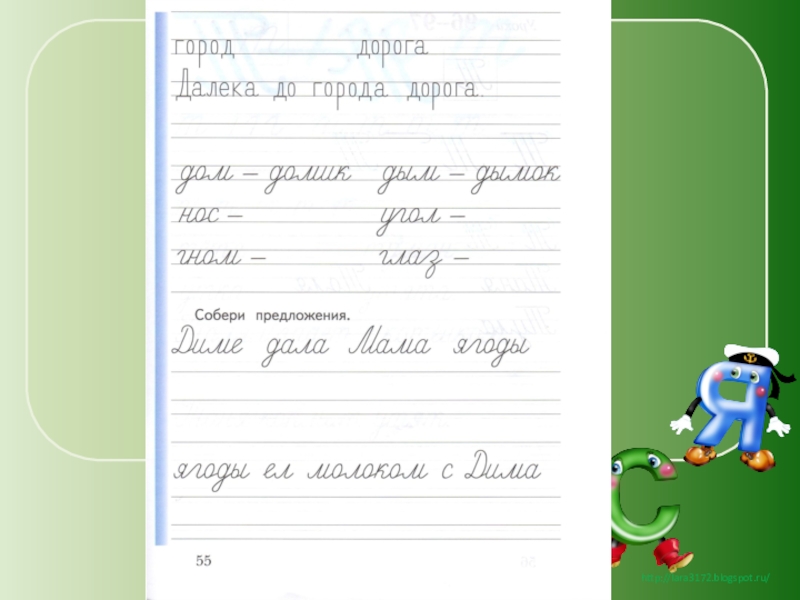 город дорога
Далека до города дорога.
дом – домик дым – дымок
нос – угол –
гном – глаз –
Собери предложения.
Диме дала Мама ягоды
ягоды ел молоком с Дима
55
http://lara3172.blogspot.ru/